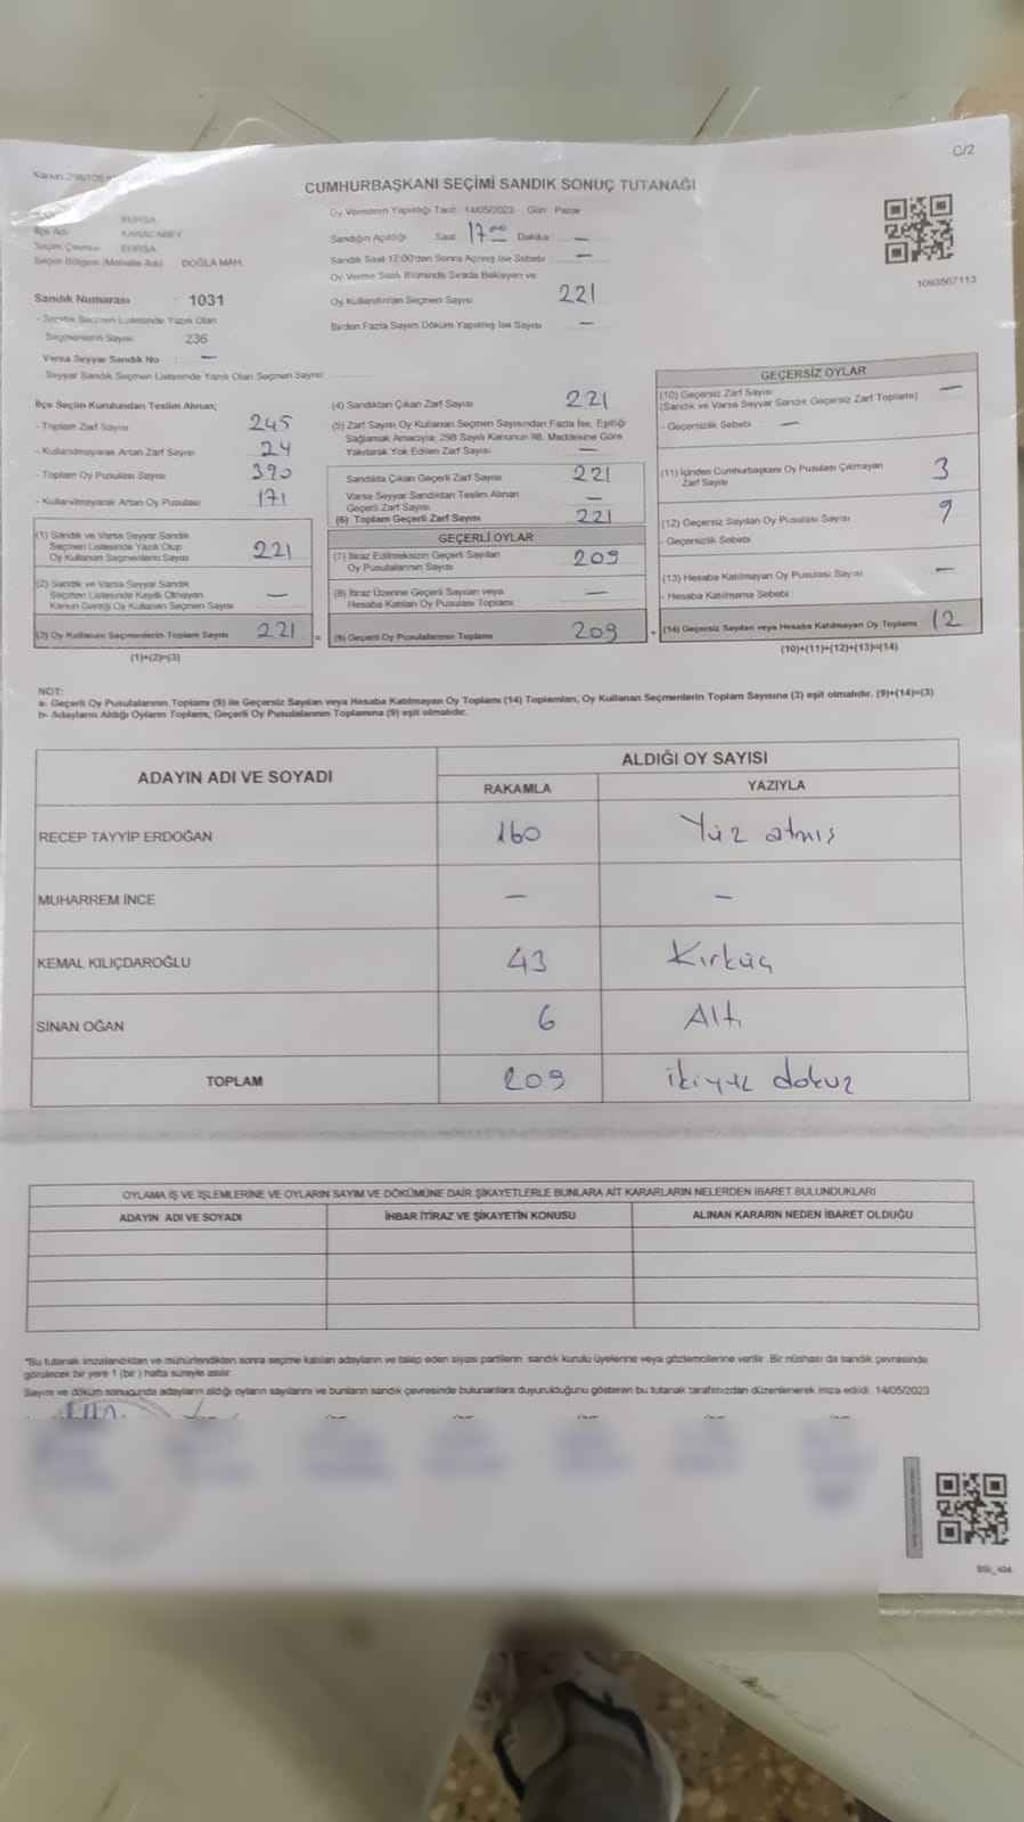 C/2
CUMHURBAŞKANI SEÇİMİ SANDIK SONUÇ TUTANAĞI
BURSA
İlçe Adı KARACABEY
Seçim Çevresi BURSA
Seçim Bölgesi (Mahalle Adı) DOĞLA MAH.
Sandık Numarası 1031
- Sandık Seçmen Listesinde Yazılı Olan
Seçmenlerin Sayısı 236
Varsa Seyyar Sandık No : —
Seyyar Sandık Seçmen Listesinde Yazılı Olan Seçmen Sayısı:
Oy Vermenin Yapıldığı Tarih: 14/05/2023 Gün: Pazar
Sandığın Açıldığı Saat 17.00 Dakika —
Sandık Saat 17:00'den Sonra Açılmış İse Sebebi —
Oy Verme Saati Bitiminde Sırada Bekleyen ve
Oy Kullandırılan Seçmen Sayısı 221
Birden Fazla Sayım Döküm Yapılmış İse Sayısı —
1093567113
İlçe Seçim Kurulundan Teslim Alınan;
- Toplam Zarf Sayısı 245
- Kullanılmayarak Artan Zarf Sayısı 24
- Toplam Oy Pusulası Sayısı 390
- Kullanılmayarak Artan Oy Pusulası 171
(1) Sandık ve Varsa Seyyar Sandık
Seçmen Listesinde Yazılı Olup
Oy Kullanan Seçmenlerin Sayısı 221
(2) Sandık ve Varsa Seyyar Sandık
Seçmen Listesinde Kayıtlı Olmayan
Kanun Gereği Oy Kullanan Seçmen Sayısı —
(3) Oy Kullanan Seçmenlerin Toplam Sayısı 221 =
(1)+(2)=(3)
(4) Sandıktan Çıkan Zarf Sayısı 221
(5) Zarf Sayısı Oy Kullanan Seçmen Sayısından Fazla İse, Eşitliği
Sağlamak Amacıyla; 298 Sayılı Kanunun 98. Maddesine Göre
Yakılarak Yok Edilen Zarf Sayısı —
Sandıkta Çıkan Geçerli Zarf Sayısı 221
Varsa Seyyar Sandıktan Teslim Alınan
Geçerli Zarf Sayısı —
(6) Toplam Geçerli Zarf Sayısı 221
GEÇERLİ OYLAR
(7) İtiraz Edilmeksizin Geçerli Sayılan
Oy Pusulalarının Sayısı 209
(8) İtiraz Üzerine Geçerli Sayılan veya
Hesaba Katılan Oy Pusulası Toplamı —
(9) Geçerli Oy Pusulalarının Toplamı 209 +
GEÇERSİZ OYLAR
(10) Geçersiz Zarf Sayısı —
(Sandık ve Varsa Seyyar Sandık Geçersiz Zarf Toplamı)
- Geçersizlik Sebebi —
(11) İçinden Cumhurbaşkanı Oy Pusulası Çıkmayan
Zarf Sayısı 3
(12) Geçersiz Sayılan Oy Pusulası Sayısı 9
- Geçersizlik Sebebi
(13) Hesaba Katılmayan Oy Pusulası Sayısı —
- Hesaba Katılmama Sebebi
(14) Geçersiz Sayılan veya Hesaba Katılmayan Oy Toplamı 12
(10)+(11)+(12)+(13)=(14)
NOT:
a- Geçerli Oy Pusulalarının Toplamı (9) ile Geçersiz Sayılan veya Hesaba Katılmayan Oy Toplamı (14) Toplamları, Oy Kullanan Seçmenlerin Toplam Sayısına (3) eşit olmalıdır. (9)+(14)=(3)
b- Adayların Aldığı Oyların Toplamı, Geçerli Oy Pusulalarının Toplamına (9) eşit olmalıdır.
ADAYIN ADI VE SOYADI
ALDIĞI OY SAYISI
RAKAMLA YAZIYLA
RECEP TAYYİP ERDOĞAN 160 Yüz atmış
MUHARREM İNCE — —
KEMAL KILIÇDAROĞLU 43 Kırküç
SİNAN OĞAN 6 Altı
TOPLAM 209 ikiyüz dokuz
OYLAMA İŞ VE İŞLEMLERİNE VE OYLARIN SAYIM VE DÖKÜMÜNE DAİR ŞİKAYETLERLE BUNLARA AİT KARARLARIN NELERDEN İBARET BULUNDUKLARI
ADAYIN ADI VE SOYADI İHBAR İTİRAZ VE ŞİKAYETİN KONUSU ALINAN KARARIN NEDEN İBARET OLDUĞU
*Bu tutanak imzalandıktan ve mühürlendikten sonra seçime katılan adayların ve talep eden siyasi partilerin sandık kurulu üyelerine veya gözlemcilerine verilir. Bir nüshası da sandık çevresinde
görülecek bir yere 1 (bir) hafta süreyle asılır.
Sayım ve döküm sonucunda adayların aldığı oyların sayılarını ve bunların sandık çevresinde bulunanlara duyurulduğunu gösteren bu tutanak tarafımızdan düzenlenerek imza edildi. 14/05/2023